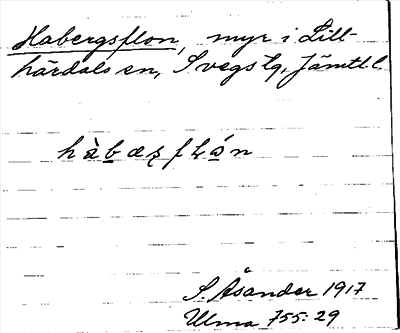 Habergsflon, myr i Lill-
härdals sn, Svegs lg, Jämtl. l.
S. Åsander 1917
Ulma 755:29